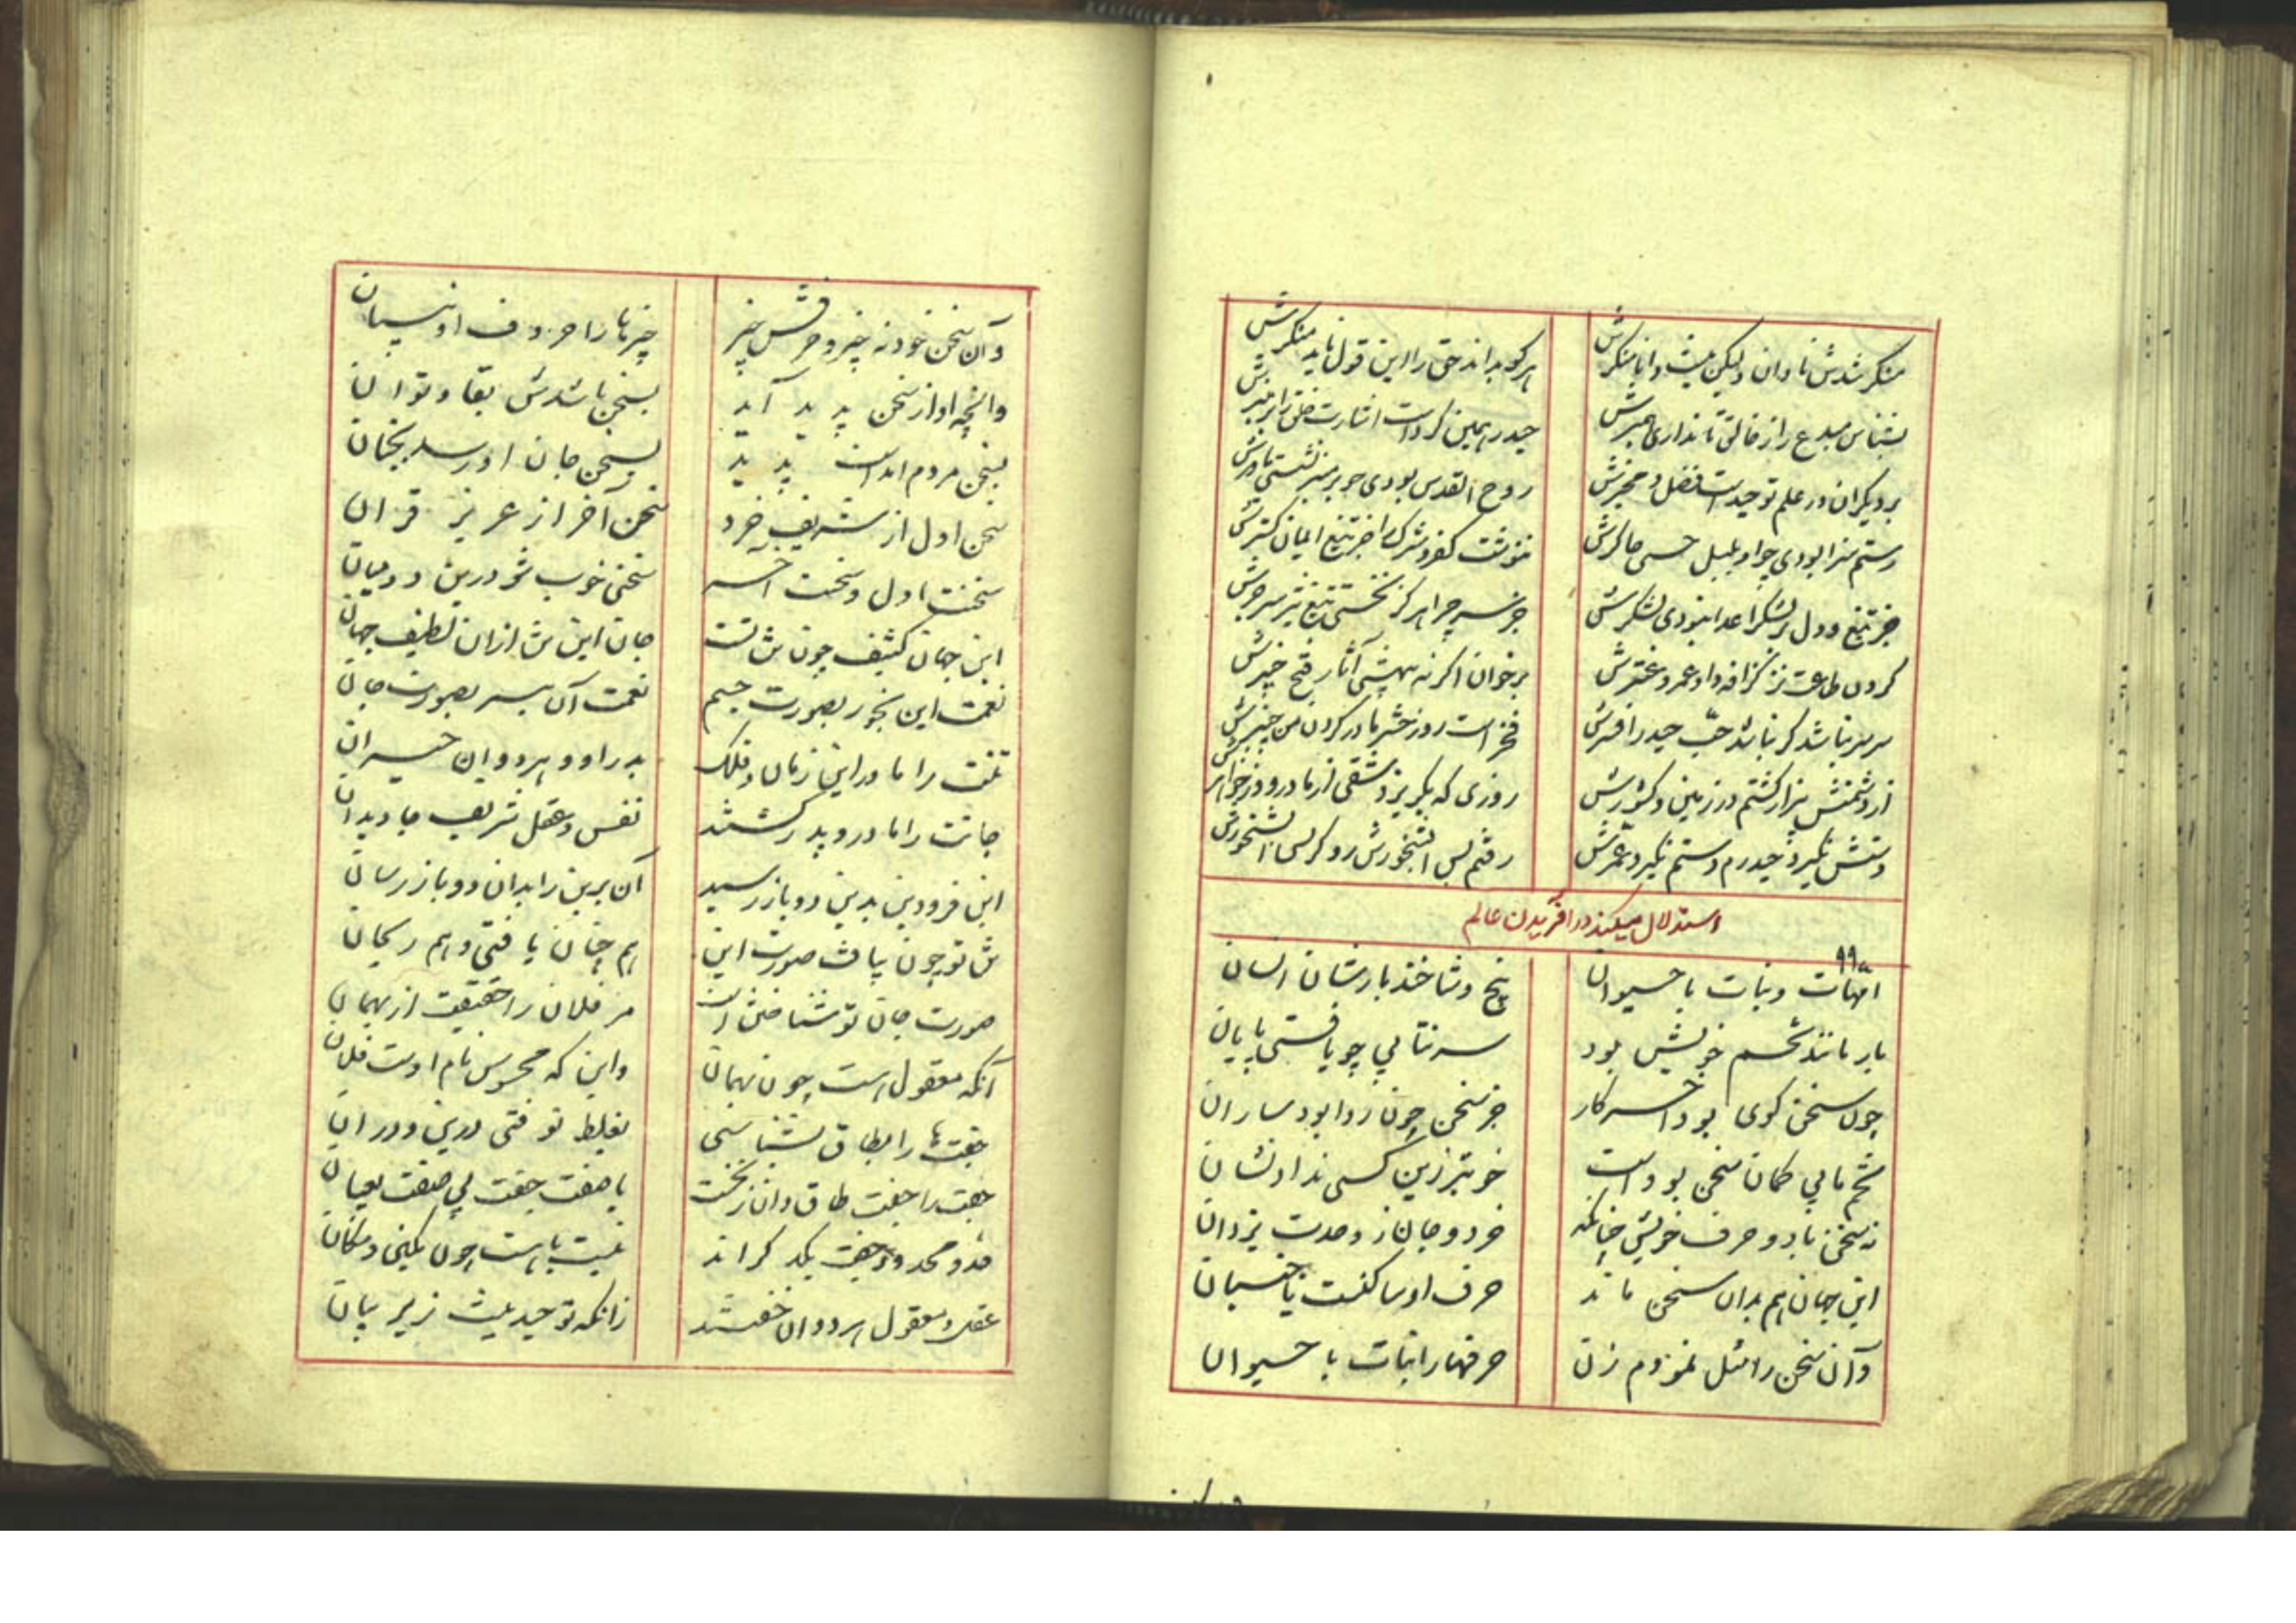 منکر شدش نادان ولیکن نیست دانا منکرش
هرکو بداند حق را این قول ناید منکرش
بشناس مبدع را ز خالق تا نداری همبرش
حیدر همین کردست اشارت خلق را بر منبرش
بر دیگران در علم توحیدست فضل و مخبرش
روح القدس بودی چو بر منبر نشستی یاورش
رستم سزا بودی چو او بلبل حسی چاکرش
ننوشت کفر و شرک را جز تیغ ایمان گسترش
جز تیغ و دل بر لشکر اعدا نبودی لشکرش
جز سر چرا هرگز نخستی تیغ تیز سر چرش
گردن طاعت نز گزافه داد عمرو عنترش
برخوان اگر نه بیهشی آثار فتح خیبرش
سر بر نباشد گر نباشد حب حیدر افسرش
فخر است روز حشر مادر کردن من چنبرش
از دشمنش بیزار گشتم در زمین و کشورش
روزی که بگریزد شقی از مادر و وز خواهرش
دستش نگیرد حیدرم دستم نگیرد عمرش
رفتم پس النجورش رو گر پس استخورش
استدلال میکند در افریدن عالم
٩٩
امهات و نبات با حیوان
بیخ و شاخند بارشان انسان
بار مانند تخم خویش بود
سر نتابی چو یافتی پایان
چون سخن گوی بود آخر کار
جز سخن چون روا بود ساران
تخم ما بی گمان سخن بوداست
خوبتر زین کسی نداد نشان
نه سخن باد و حرف خویش چنانکه
خرد و جان ز وحدت یزدان
این جهان هم بدان سخن ماند
حرف او ساکنست یا جنبان
وآن سخن را مثل نمودم زن
حرفها را نبات با حیوان
وآن سخن خود نه چیز و حرفش چیز
چیزها را حروف او نیسان
وانچه او از سخن پدید آید
بسخن باشدش بقا و توان
بسخن مردم امداست پدید
بسخن جان او رسد بجنان
سخن اول از شریف خرد
سخن آخر از عزیز قران
سخنت اول و سخنت آخر
سخنی خوب شو درین دو میان
این جهان کثیف چون تن تست
جان این تن ازان لطیف جهان
نعمت این بخور بصورت جسم
نعمت آن ببر بصورت جان
تنت را مادر این زمان و فلک
پدر او و هر دو این حیران
جانت را مادر و پدر گشتند
نفس و عقل شریف جاویدان
این فرودین بدین دو باز رسید
آن برین را بدان دو باز رسان
تن تو چون بیافت صورت این
هم چنان یافتی و هم ریحان
صورت جان تو شناختن است
مر فلان را حقیقت از بهمان
آنکه معقول است چون بهمان
واین که محسوس نام اوست فلان
جفت ها را بطاق بشناسی
بغلط تو فتی درین و دران
جفت را جفت طاق دان ز نخست
با صفت جفت بی صفت یعیان
حد و محدود جفت یکدگر اند
نیست بایست چون یکین و مکان
عقل و معقول هر دوان خفتند
زانکه توحید نیست زیر بیان